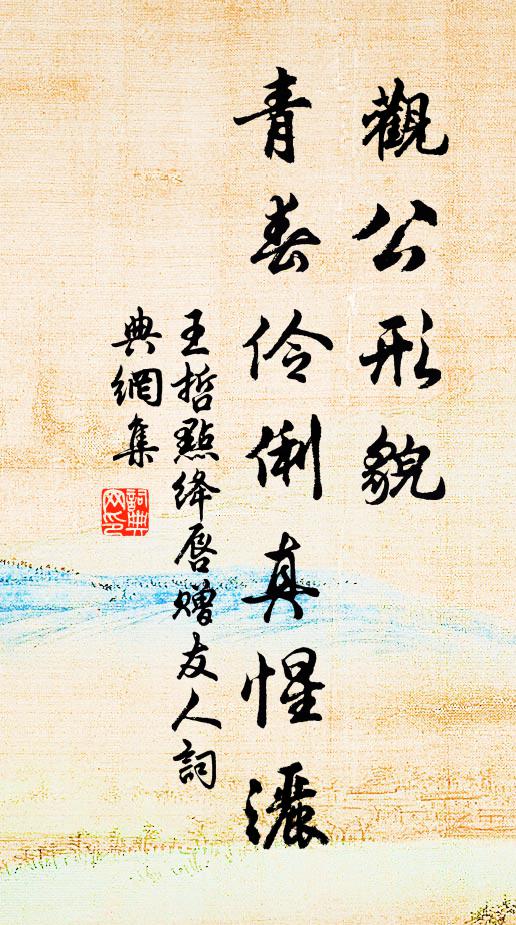 觀公形貌
青春伶俐真惺灑
王哲點絳唇贈友人詞
典網集
詞典網印